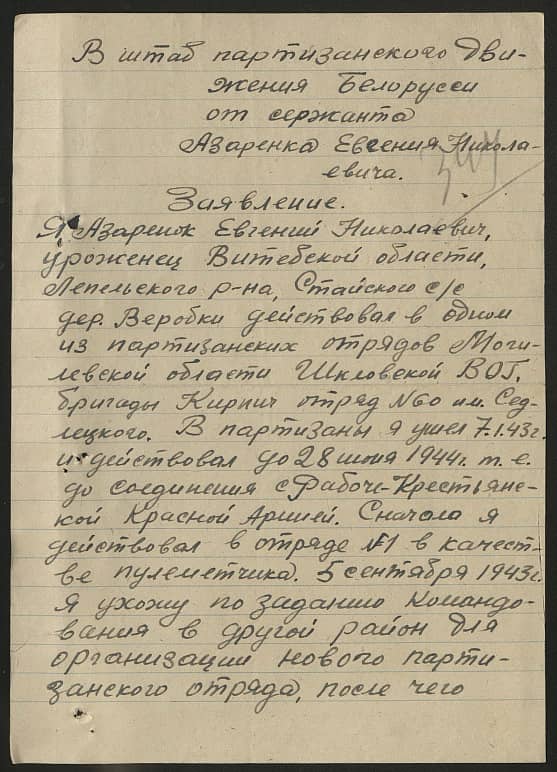 В штаб партизанского дви-
жения Белорусси
от сержанта
Азаренка Евгения Никола-
евича.
Заявление.
Я, Азаренок Евгений Николаевич,
уроженец Витебской области,
Лепельского р-на, Стайского с/с
дер. Веробки действовал в одном
из партизанских отрядов Моги-
левской области Шкловской ВОГ,
бригады Кирпич отряд №60 им. Сед-
лецкого. В партизаны я ушел 7.1.43г.
и действовал до 28 июня 1944г. т. е.
до соединения с Рабоче-Крестьянс-
кой Красной Армией. Сначала я
действовал в отряде №1 в качест-
ве пулеметчика. 5 сентября 1943г.
я ухожу по заданию Командо-
вания в другой район для
организации нового парти-
занского отряда, после чего